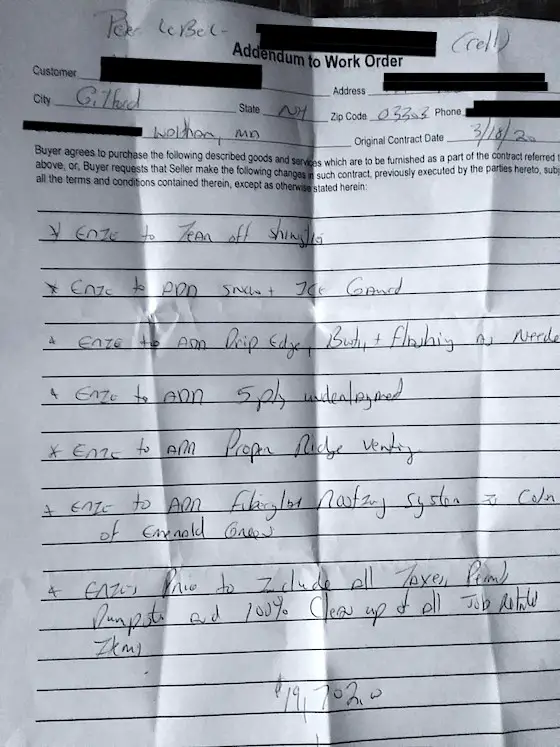 Peter LeBel - (cell)
Addendum to Work Order
Customer
Address
City Gilford State NH Zip Code 03303 Phone
Waltham, MA
Original Contract Date 3/18/20
Buyer agrees to purchase the following described goods and services which are to be furnished as a part of the contract referred t
above, or, Buyer requests that Seller make the following changes in such contract, previously executed by the parties hereto, subj
all the terms and conditions contained therein, except as otherwise stated herein:
* Enzo to Tear off shingles
* Enzo to ADD Snow + Ice Guard
* Enzo to ADD Drip Edge, Boots, + flashing as Neede
* Enzo to ADD 5 ply underlayment
* Enzo to ADD Proper Ridge Venting
* Enzo to ADD Fiberglass Roofing System in Color
of Emerald Green
* Enzo's Price to Include all Taxes, Permits
Dumpster and 100% Clean up of all Job Related
Items
$19,702.0